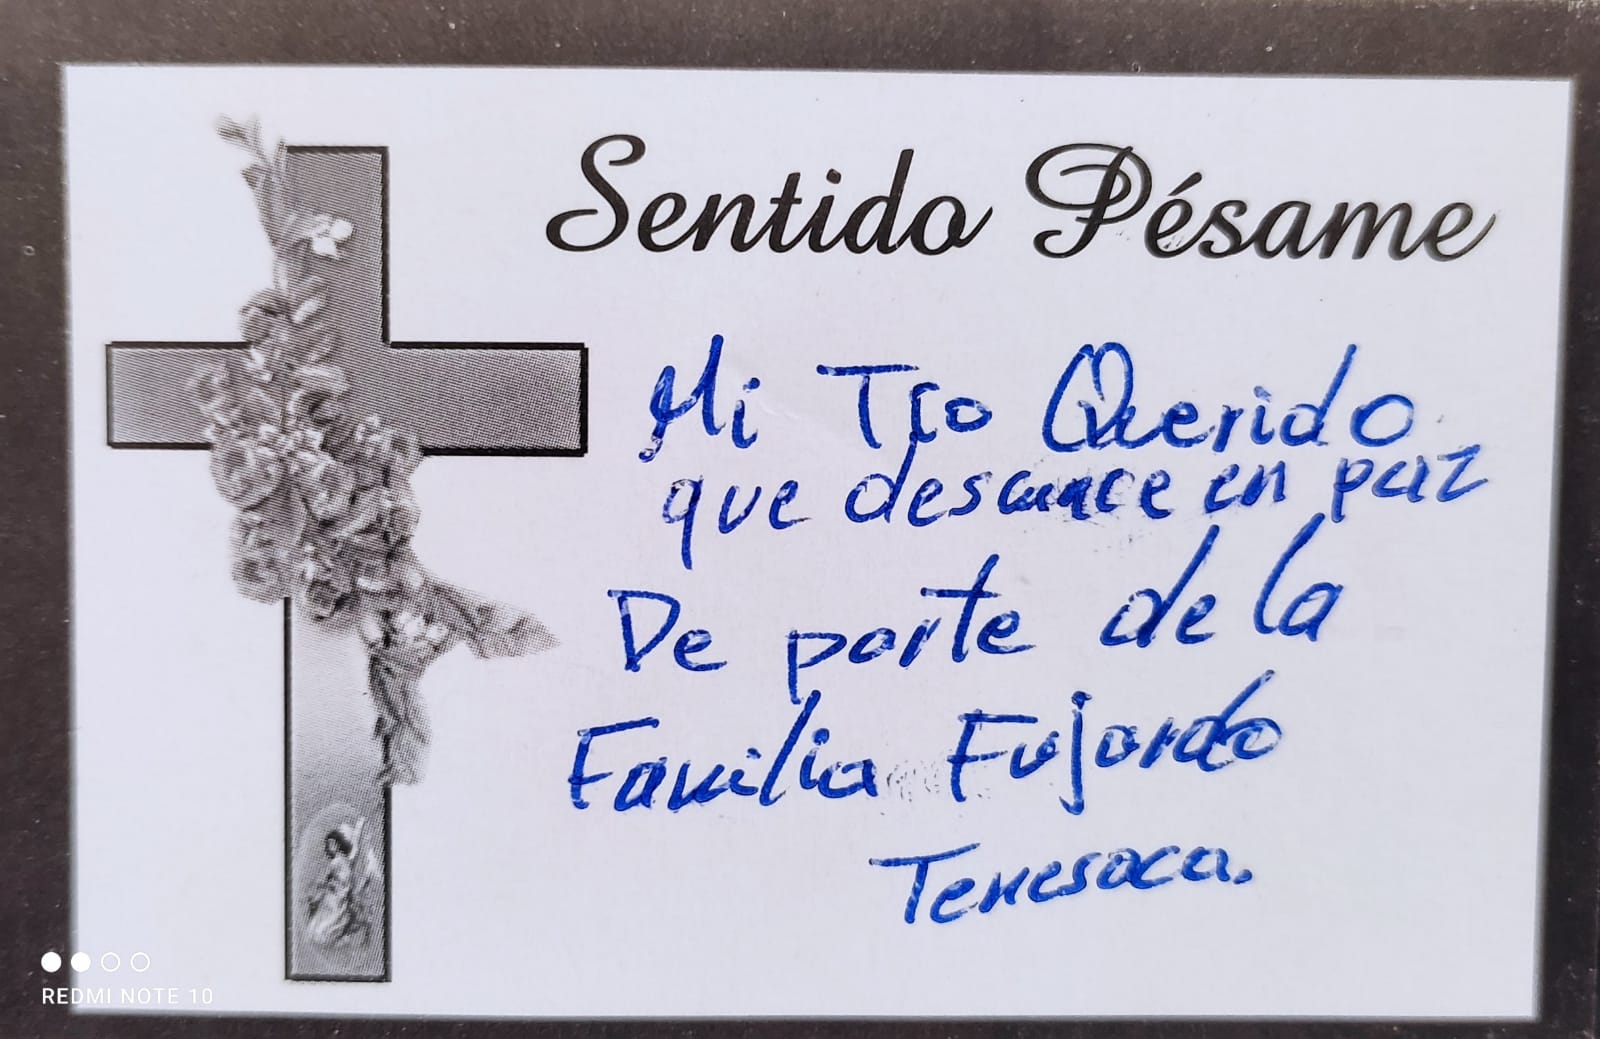 Sentido Pésame
Mi Tío Querido
que descance en paz
De parte de la
Familia Fajardo
Tenesaca.
REDMI NOTE 10